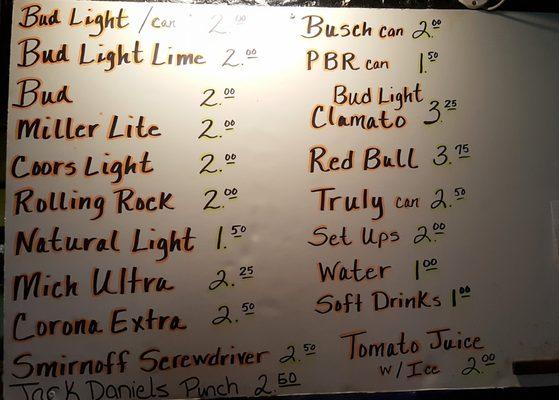 Bud Light /can 2.00
Bud Light Lime 2.00
Bud 2.00
Miller Lite 2.00
Coors Light 2.00
Rolling Rock 2.00
Natural Light 1.50
Mich Ultra 2.25
Corona Extra 2.50
Smirnoff Screwdriver 2.50
Jack Daniels Punch 2.50
Busch can 2.00
PBR can 1.50
Bud Light
Clamato 3.25
Red Bull 3.75
Truly can 2.50
Set Ups 2.00
Water 1.00
Soft Drinks 1.00
Tomato Juice
w/Ice 2.00